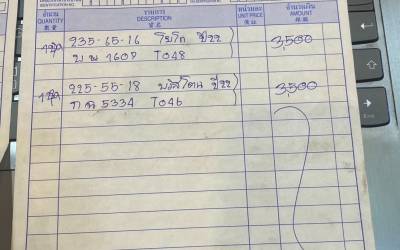 จำนวน รายการ หน่วยละ จำนวนเงิน
QUANTITY DESCRIPTION UNIT PRICE AMOUNT
1ชุด 235-65-16 โยโก ปี22 3,500
บพ 1607 T048
1ชุด 225-55-18 ปี22 3,500
กค 5334 T046